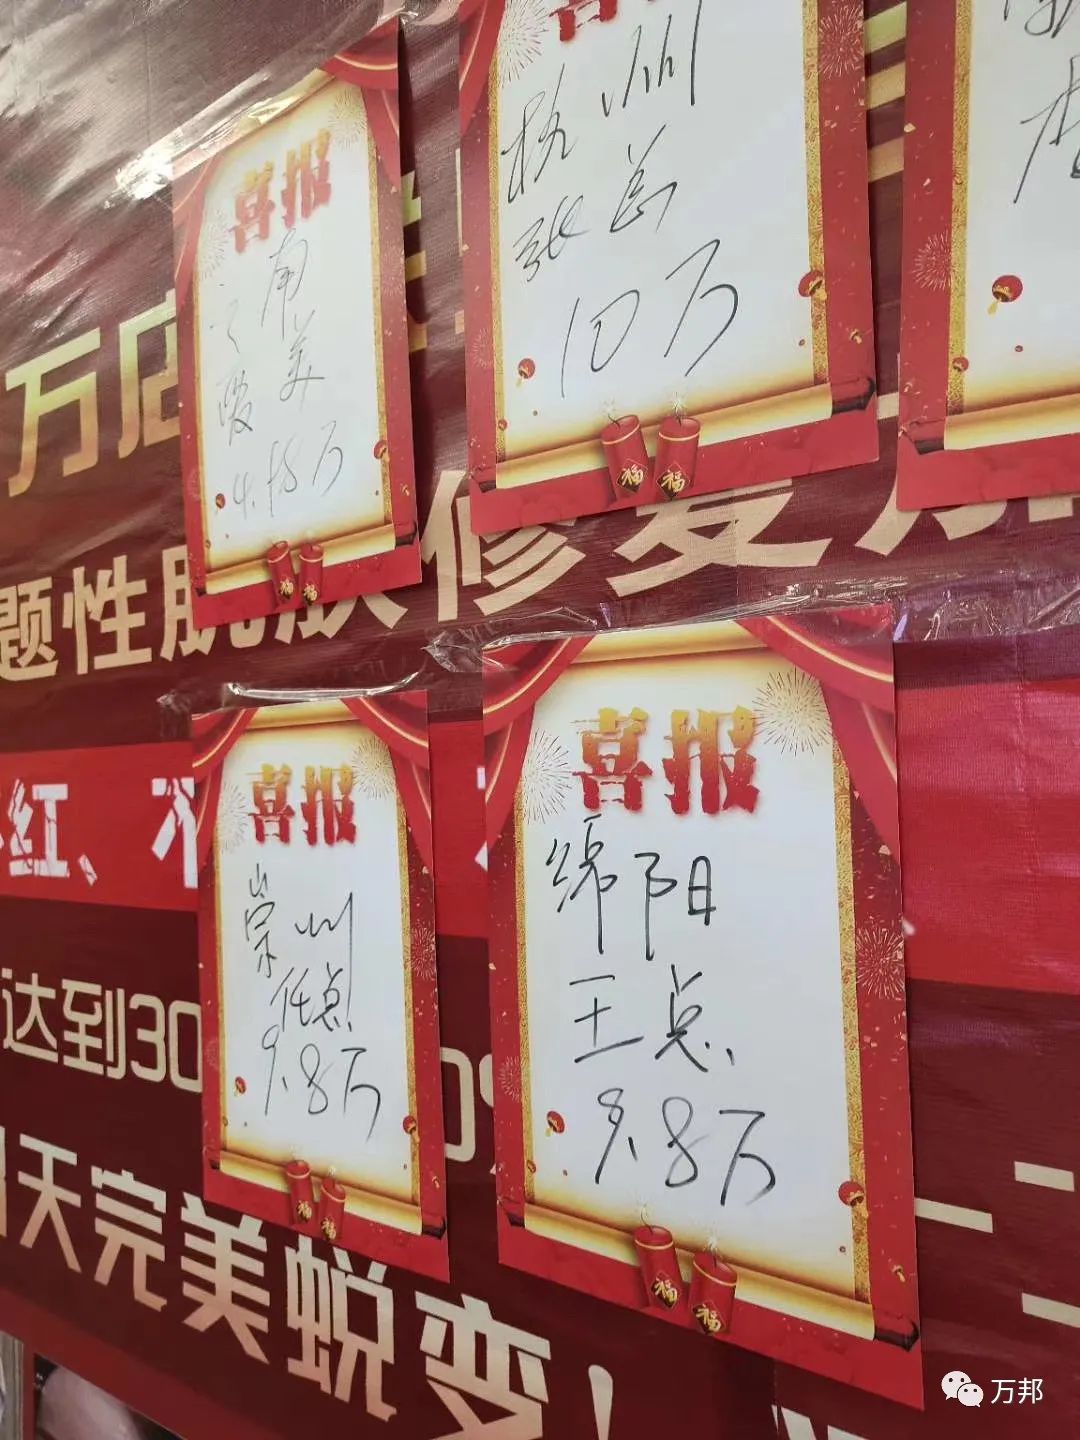 喜报
4.98万
喜
杭州
张总
10万
万店
题性肌肤修复
喜报
崇州
任总
9.8万
喜报
绵阳
王总
9.8万
红、不
达到30
天完美蜕变!
福
福
福
福
福
福
福
福
万邦